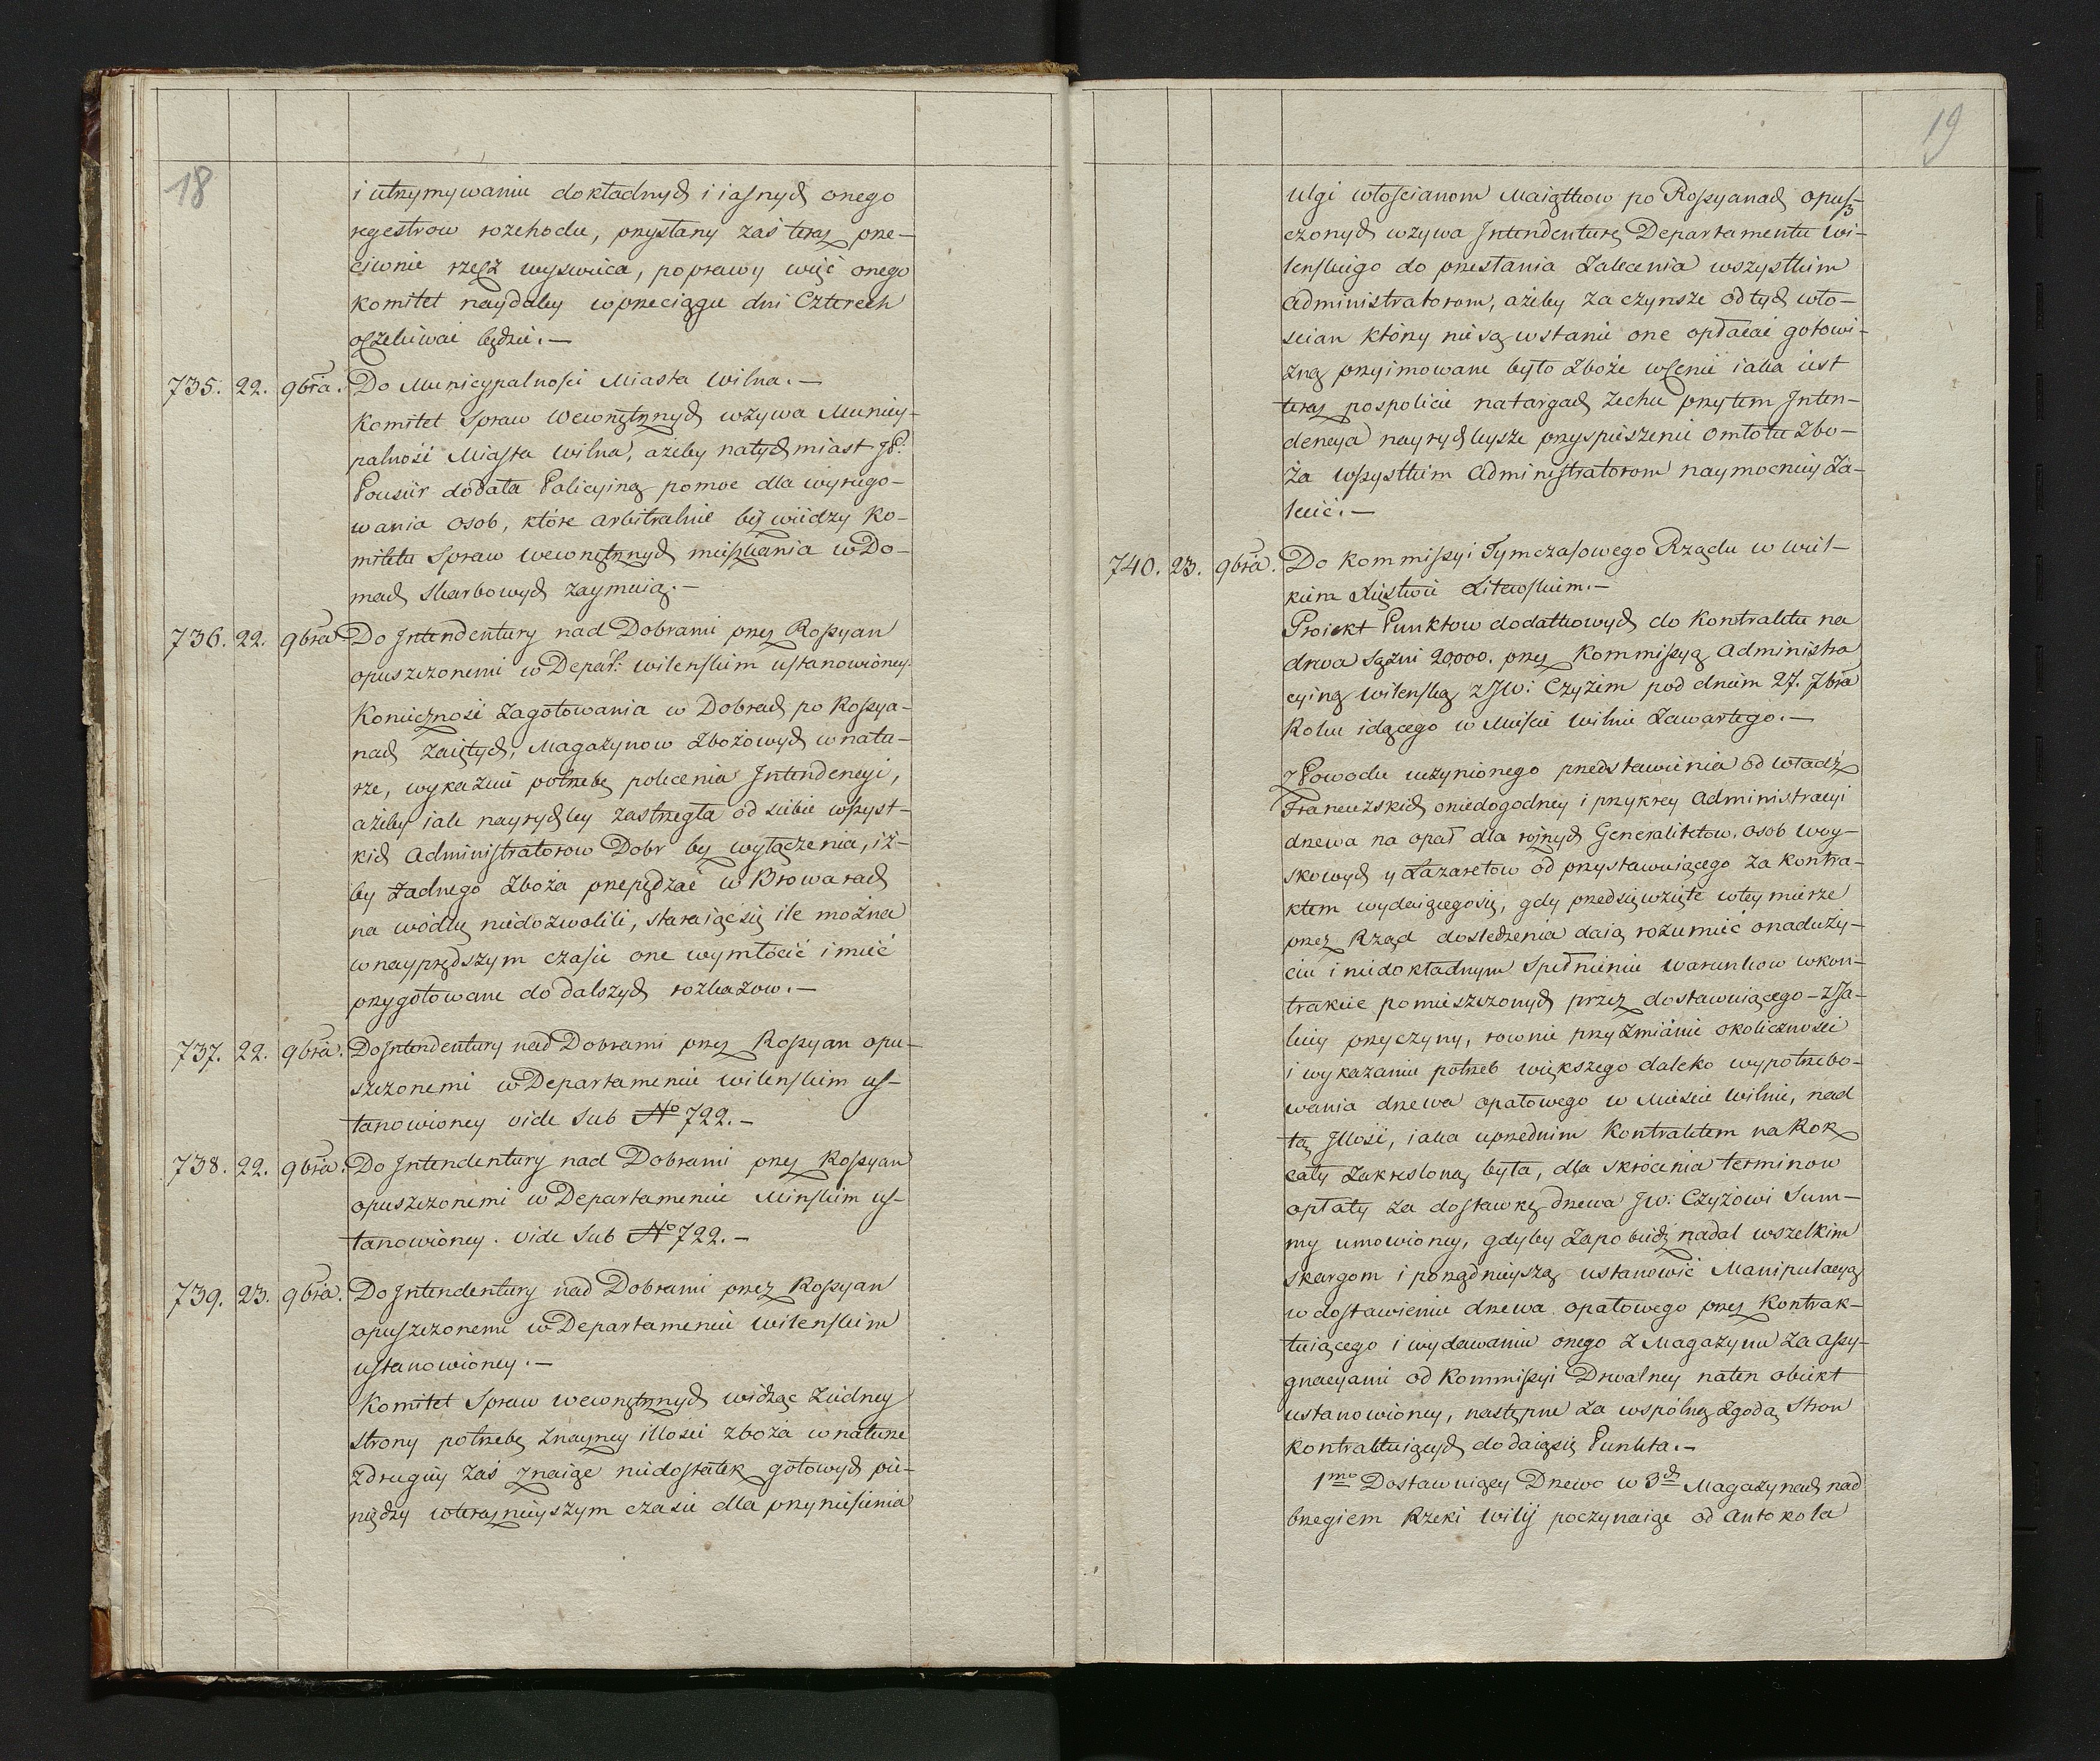 18
i utrzymywaniu dokładnych i iasnych onego
regestrow rozchodu, przysłany zaś teraz prze-
ciwnie rzecz wyswieca, poprawy więc onego
Komitet naydaley w przeciągu dni Czterech
oczekiwać będzie.—
735. 22. 9bra. Do Municypalności Miasta Wilna.—
Komitet Spraw Wewnętrznych wzywa Municy-
palność Miasta Wilna, ażeby natychmiast JP.
Pousier dodała Policyiną pomoc dla wyrugo-
wania osob, które arbitralnie bez wiedzy Ko-
mitetu Spraw Wewnętrznych mieszkania w Do-
mach Skarbowych zaymuią.—
736. 22. 9bra Do Intendentury nad Dobrami przez Rossyan
opuszczonemi w Depar: Wilenskim ustanowioney.
Konieczność zagotowania w Dobrach po Rossya-
nach zaiętych, Magazynow Zbożowych w natu-
rze, wykazuie potrzebę polecenia Intendencyi,
ażeby iak nayrychley zastrzegła od siebie wszyst-
kich Administratorow Dobr bez wyłączenia, iż-
by żadnego Zboża przepędzać w Browarach
na wódkę niedozwolili, staraiąc się ile można
w nayprędszym czasie one wymłócić i mieć
przygotowane do dalszych rozkazow.—
737. 22. 9bra. Do Intendentury nad Dobrami przez Rossyan opu-
szczonemi w Departamencie Wilenskim us-
tanowioney vide Sub No 722.—
738. 22. 9bra. Do Intendentury nad Dobrami przez Rossyan
opuszczonemi w Departamencie Minskim us-
tanowioney. vide Sub No 722.—
739. 23. 9bra. Do Intendentury nad Dobrami przez Rossyan
opuszczonemi w Departamencie Wilenskim
ustanowioney.—
Komitet Spraw Wewnętrznych widząc z iedney
strony potrzebę znaczney illości zboża w naturze
z drugiey zaś znaiąc niedostatek gotowych pie-
niędzy w teraznieyszym czasie dla przyniesienia
19
Ulgi włoscianom Maiątkow po Rossyanach opusz-
czonych wzywa Intendenturę Departamentu Wi-
lenskiego do przesłania zalecenia wszystkim
Administratorom, ażeby za czynsze od tych wło-
scian którzy nie są w stanie one opłacać gotowi-
zną przyimowane było Zboże w cenie iaka iest
teraz pospolicie na targach zechce przytem Inten-
dencya nayrychleysze przyspieszenie omłotu Zbo-
ża wszystkim Administratorom naymocniey Za-
lecić.—
740. 23. 9bra. Do Kommissyi Tymczasowego Rządu w Wiel-
kiem Xięstwie Litewskim.—
Proiekt Punktow dodatkowych do Kontraktu na
drwa Sążni 20,000. przez Kommissyą Administra
cyiną Wilenską z JW: Czyżem pod dniem 27. 7bra
Roku idącego w Mieście Wilnie Zawartego.—
Z Powodu uczynionego przedstawienia od Władz
Francuzskich o niedogodney i przykrey Administracyi
drzewa na opał dla rożnych Generalitetow, osob Woy-
skowych y Lazaretow od przystawuiącego za Kontra-
ktem wydaiącego się, gdy przedsięwzięte w tey mierze
przez Rząd dosledzenia daią rozumieć o naduży-
ciu i niedokładnym Spełnieniu Warunkow w kon-
trakcie pomieszczonych przez dostawuiącego - z Ja-
kiey przyczyny, rownie przy Zmianie okoliczności
i wykazaniu potrzeb większego daleko wypotrzebo-
wania drzewa opałowego w Mieście Wilnie, nad
tą Illość, iaka uprzednim Kontraktem na Rok
cały Zakreslona była, dla skrócenia terminow
opłaty za dostawkę drzewa JW: Czyżowi Sum-
my umowioney, gdyby Zapobiedz nadal wszelkim
skargom i porządnieyszą ustanowić Manipulacyą
w dostawieniu drzewa opałowego przez Kontrak-
tuiącego i wydawaniu onego z Magazynu za assy-
gnacyami od Kommissyi Drwalney na ten obiekt
ustanowioney, następne za wspólną zgodą Stron
kontraktuiących dodaią się Punkta.—
1mo Dostawuiący Drzewo w 3ch Magazynach nad
brzegiem Rzeki Wilij poczynaiąc od Antokola